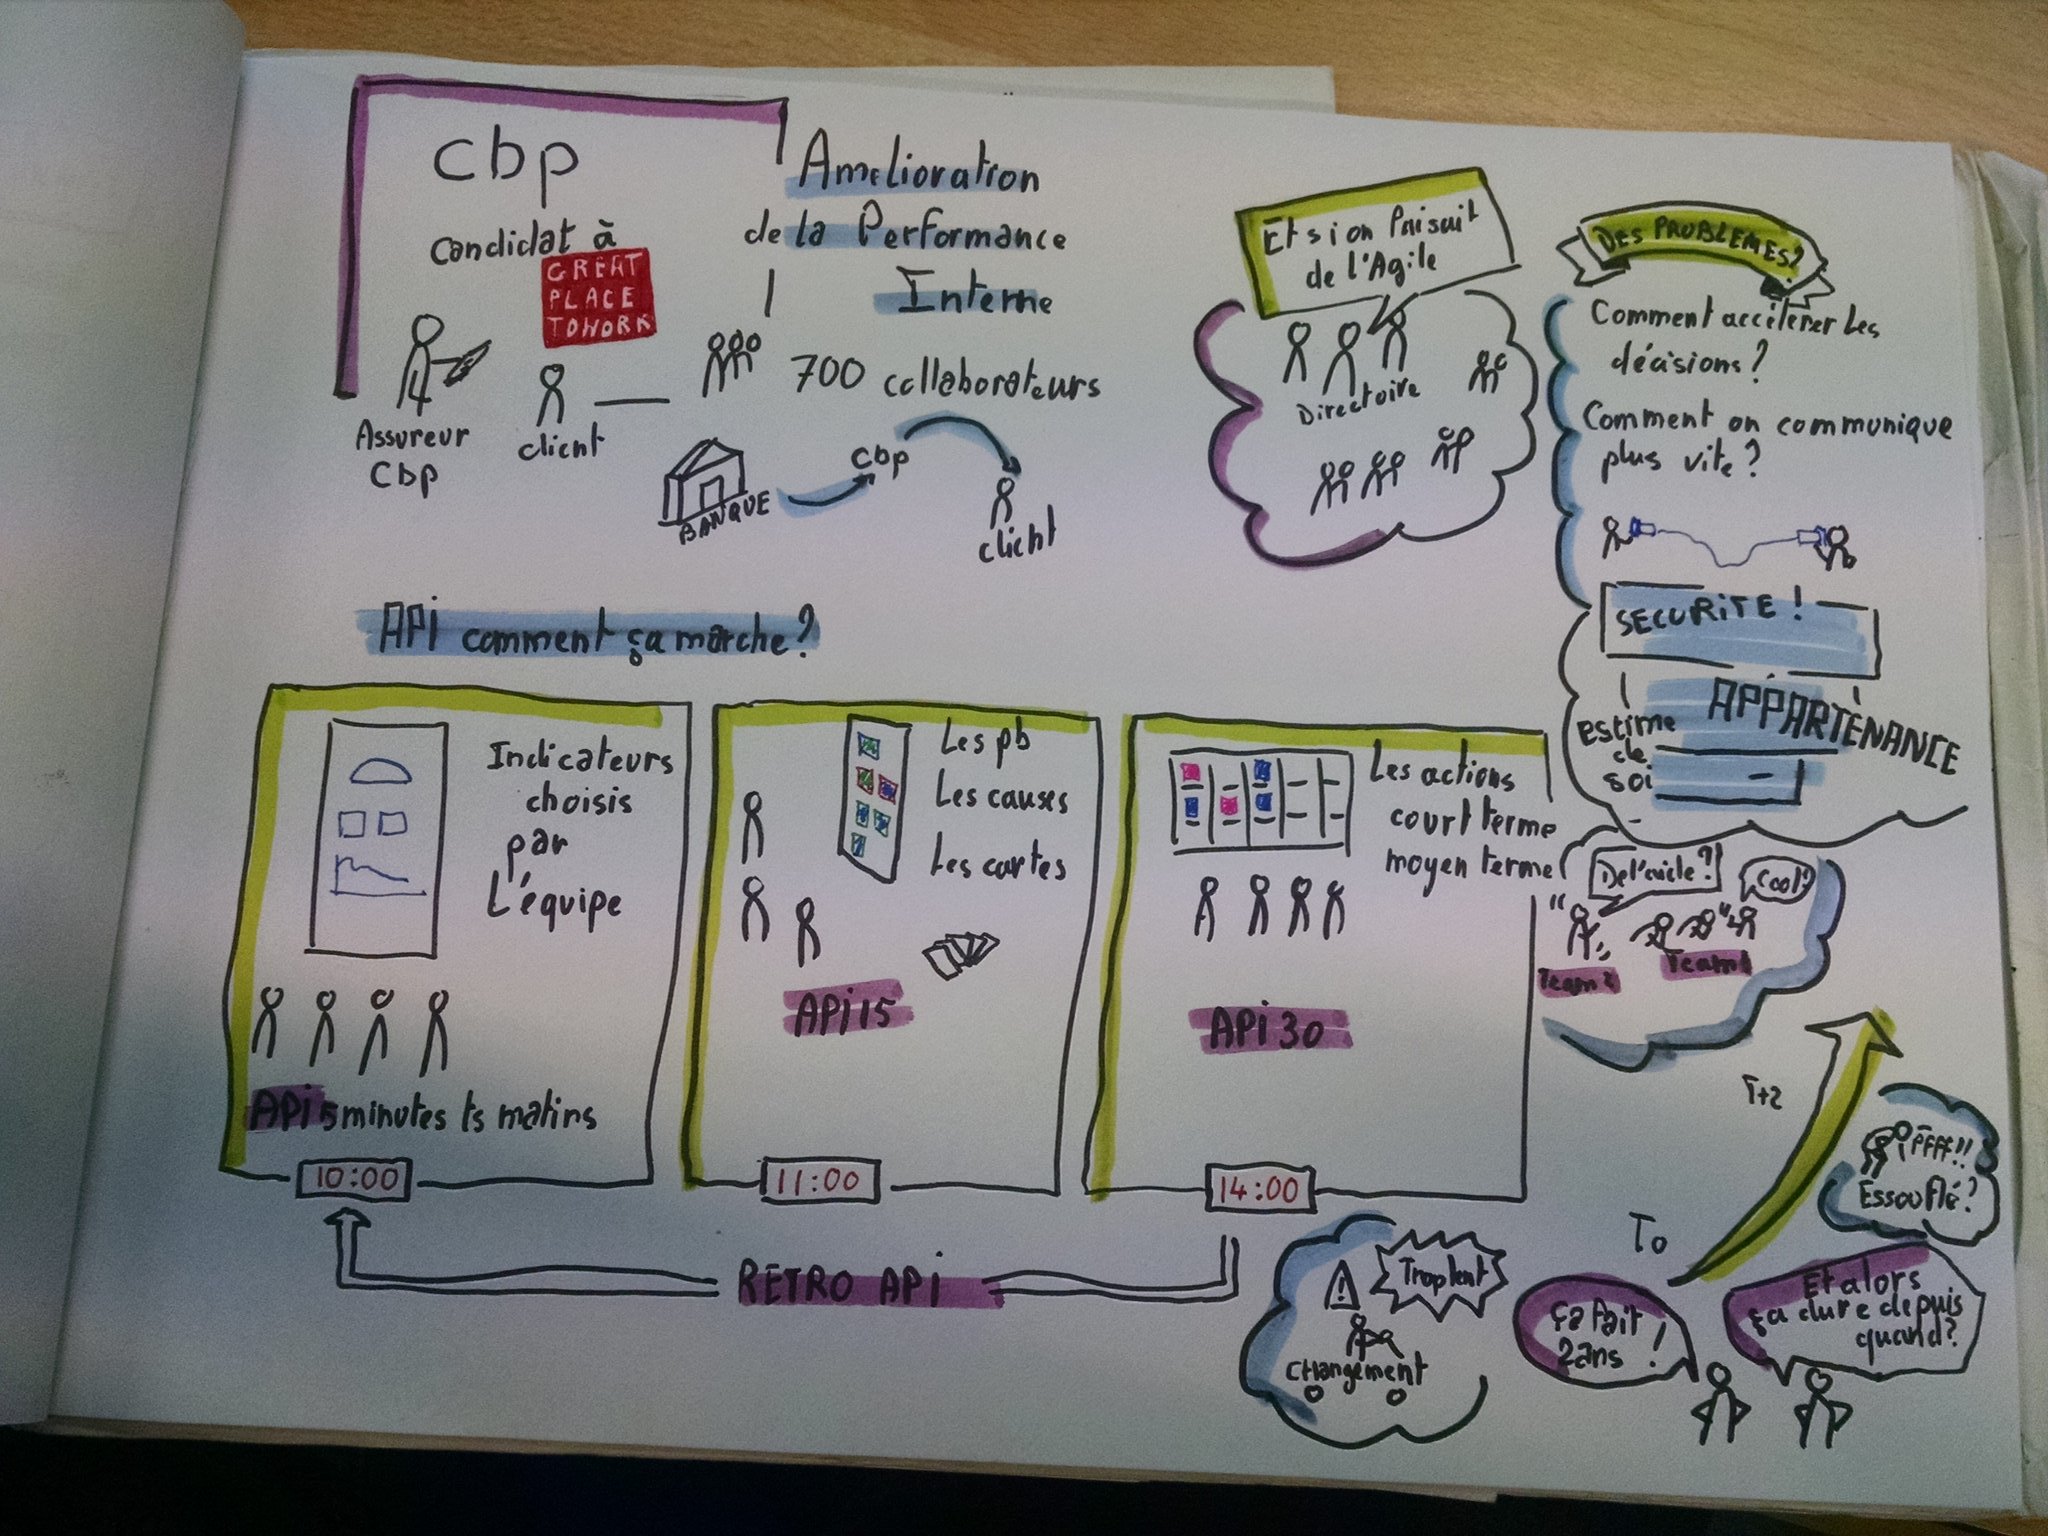 cbp
Candidat à
GREAT
PLACE
TO WORK
Assureur
Cbp
client
Amelioration
de la Performance
Interne
700 collaborateurs
BANQUE
cbp
client
Et si on faisait
de l'Agile
Directoire
DES PROBLEMES?
Comment accélerer les
décisions?
Comment on communique
plus vite?
SECURITE !
APPARTENANCE
estime
de
soi
API comment ça marche?
Indicateurs
choisis
par
L'équipe
API 5 minutes ts matins
10:00
Les pb
Les causes
Les cartes
API 15
11:00
Les actions
court terme
moyen terme
API 30
14:00
RETRO API
De l'aide?
Cool?
Team 2
Team 1
Trop lent
Changement
T0
T+2
PFFF!!
Essouflé?
ça fait
2 ans !
Et alors
ça dure depuis
quand?